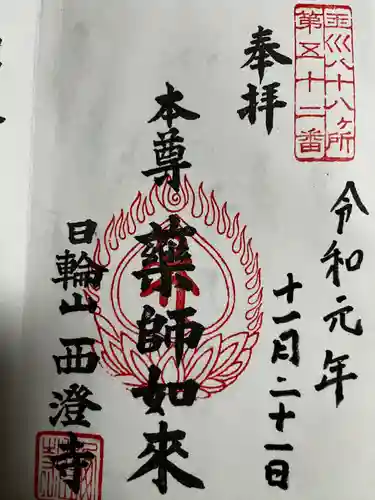 奉拝
第五十二番
八十八ヶ所
令和元年
十一月二十一日
本尊
薬師如來
日輪山 西澄寺